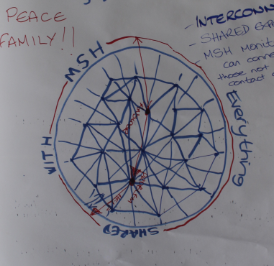 PEACE
FAMILY!!
- INTERCONN
- SHARED
MSH Monit
can conne
those not
contact
MSH
Everything
SHARED
WITH